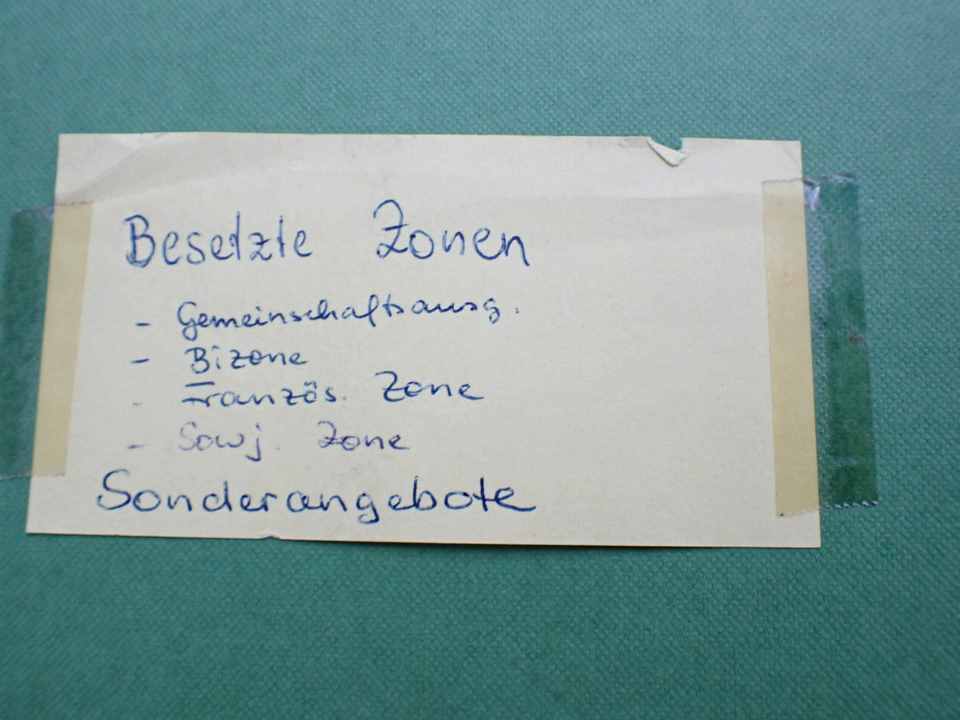 Besetzte Zonen
- Gemeinschaftsausg.
- Bizone
- Französ. Zone
- Sowj. Zone
Sonderangebote